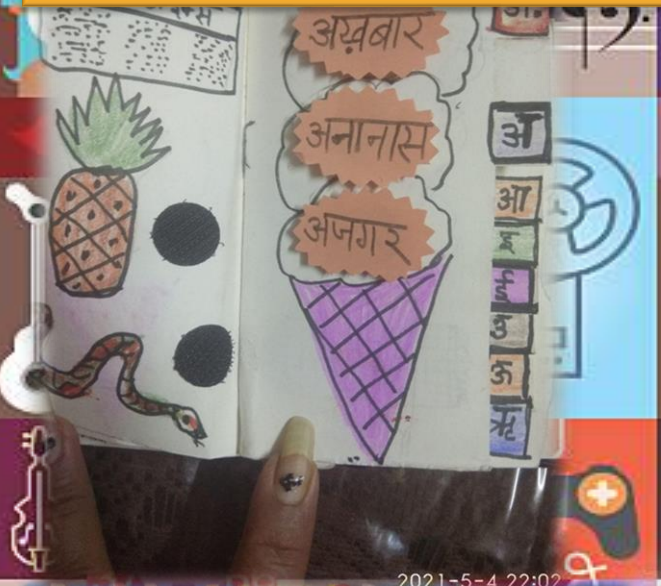 अख़बार
अनानास
अजगर
अ
आ
इ
ई
उ
ऊ
ऋ
2021-5-4 22:02